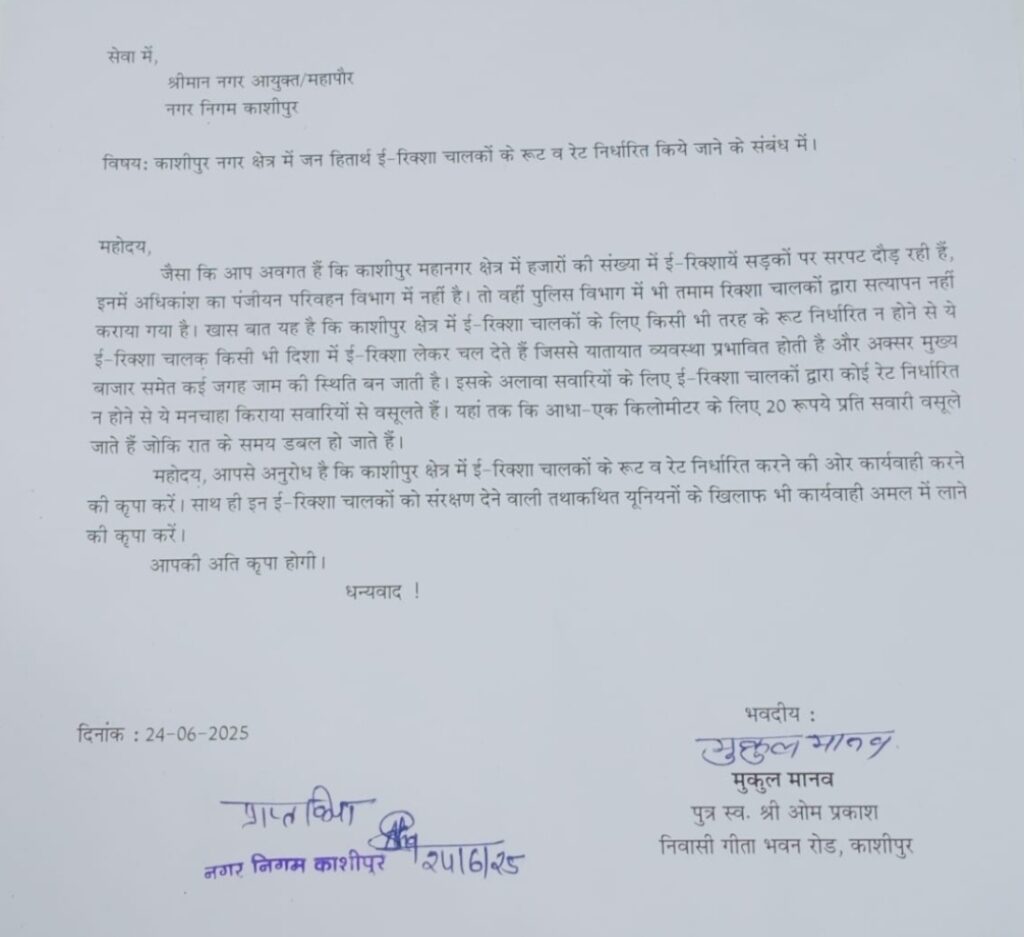 सेवा में,
श्रीमान नगर आयुक्त/महापौर
नगर निगम काशीपुर
विषय: काशीपुर नगर क्षेत्र में जन हितार्थ ई-रिक्शा चालकों के रूट व रेट निर्धारित किये जाने के संबंध में।
महोदय,
जैसा कि आप अवगत हैं कि काशीपुर महानगर क्षेत्र में हजारों की संख्या में ई-रिक्शायें सड़कों पर सरपट दौड़ रही हैं,
इनमें अधिकांश का पंजीयन परिवहन विभाग में नहीं है। तो वहीं पुलिस विभाग में भी तमाम रिक्शा चालकों द्वारा सत्यापन नहीं
कराया गया है। खास बात यह है कि काशीपुर क्षेत्र में ई-रिक्शा चालकों के लिए किसी भी तरह के रूट निर्धारित न होने से ये
ई-रिक्शा चालक किसी भी दिशा में ई-रिक्शा लेकर चल देते हैं जिससे यातायात व्यवस्था प्रभावित होती है और अक्सर मुख्य
बाजार समेत कई जगह जाम की स्थिति बन जाती है। इसके अलावा सवारियों के लिए ई-रिक्शा चालकों द्वारा कोई रेट निर्धारित
न होने से ये मनचाहा किराया सवारियों से वसूलते हैं। यहां तक कि आधा-एक किलोमीटर के लिए 20 रूपये प्रति सवारी वसूले
जाते हैं जोकि रात के समय डबल हो जाते हैं।
महोदय, आपसे अनुरोध है कि काशीपुर क्षेत्र में ई-रिक्शा चालकों के रूट व रेट निर्धारित करने की ओर कार्यवाही करने
की कृपा करें। साथ ही इन ई-रिक्शा चालकों को संरक्षण देने वाली तथाकथित यूनियनों के खिलाफ भी कार्यवाही अमल में लाने
की कृपा करें।
आपकी अति कृपा होगी।
धन्यवाद !
दिनांक : 24-06-2025
भवदीय :
मुकुल मानव
मुकुल मानव
पुत्र स्व. श्री ओम प्रकाश
निवासी गीता भवन रोड, काशीपुर
प्राप्त किया
नगर निगम काशीपुर 24/6/25